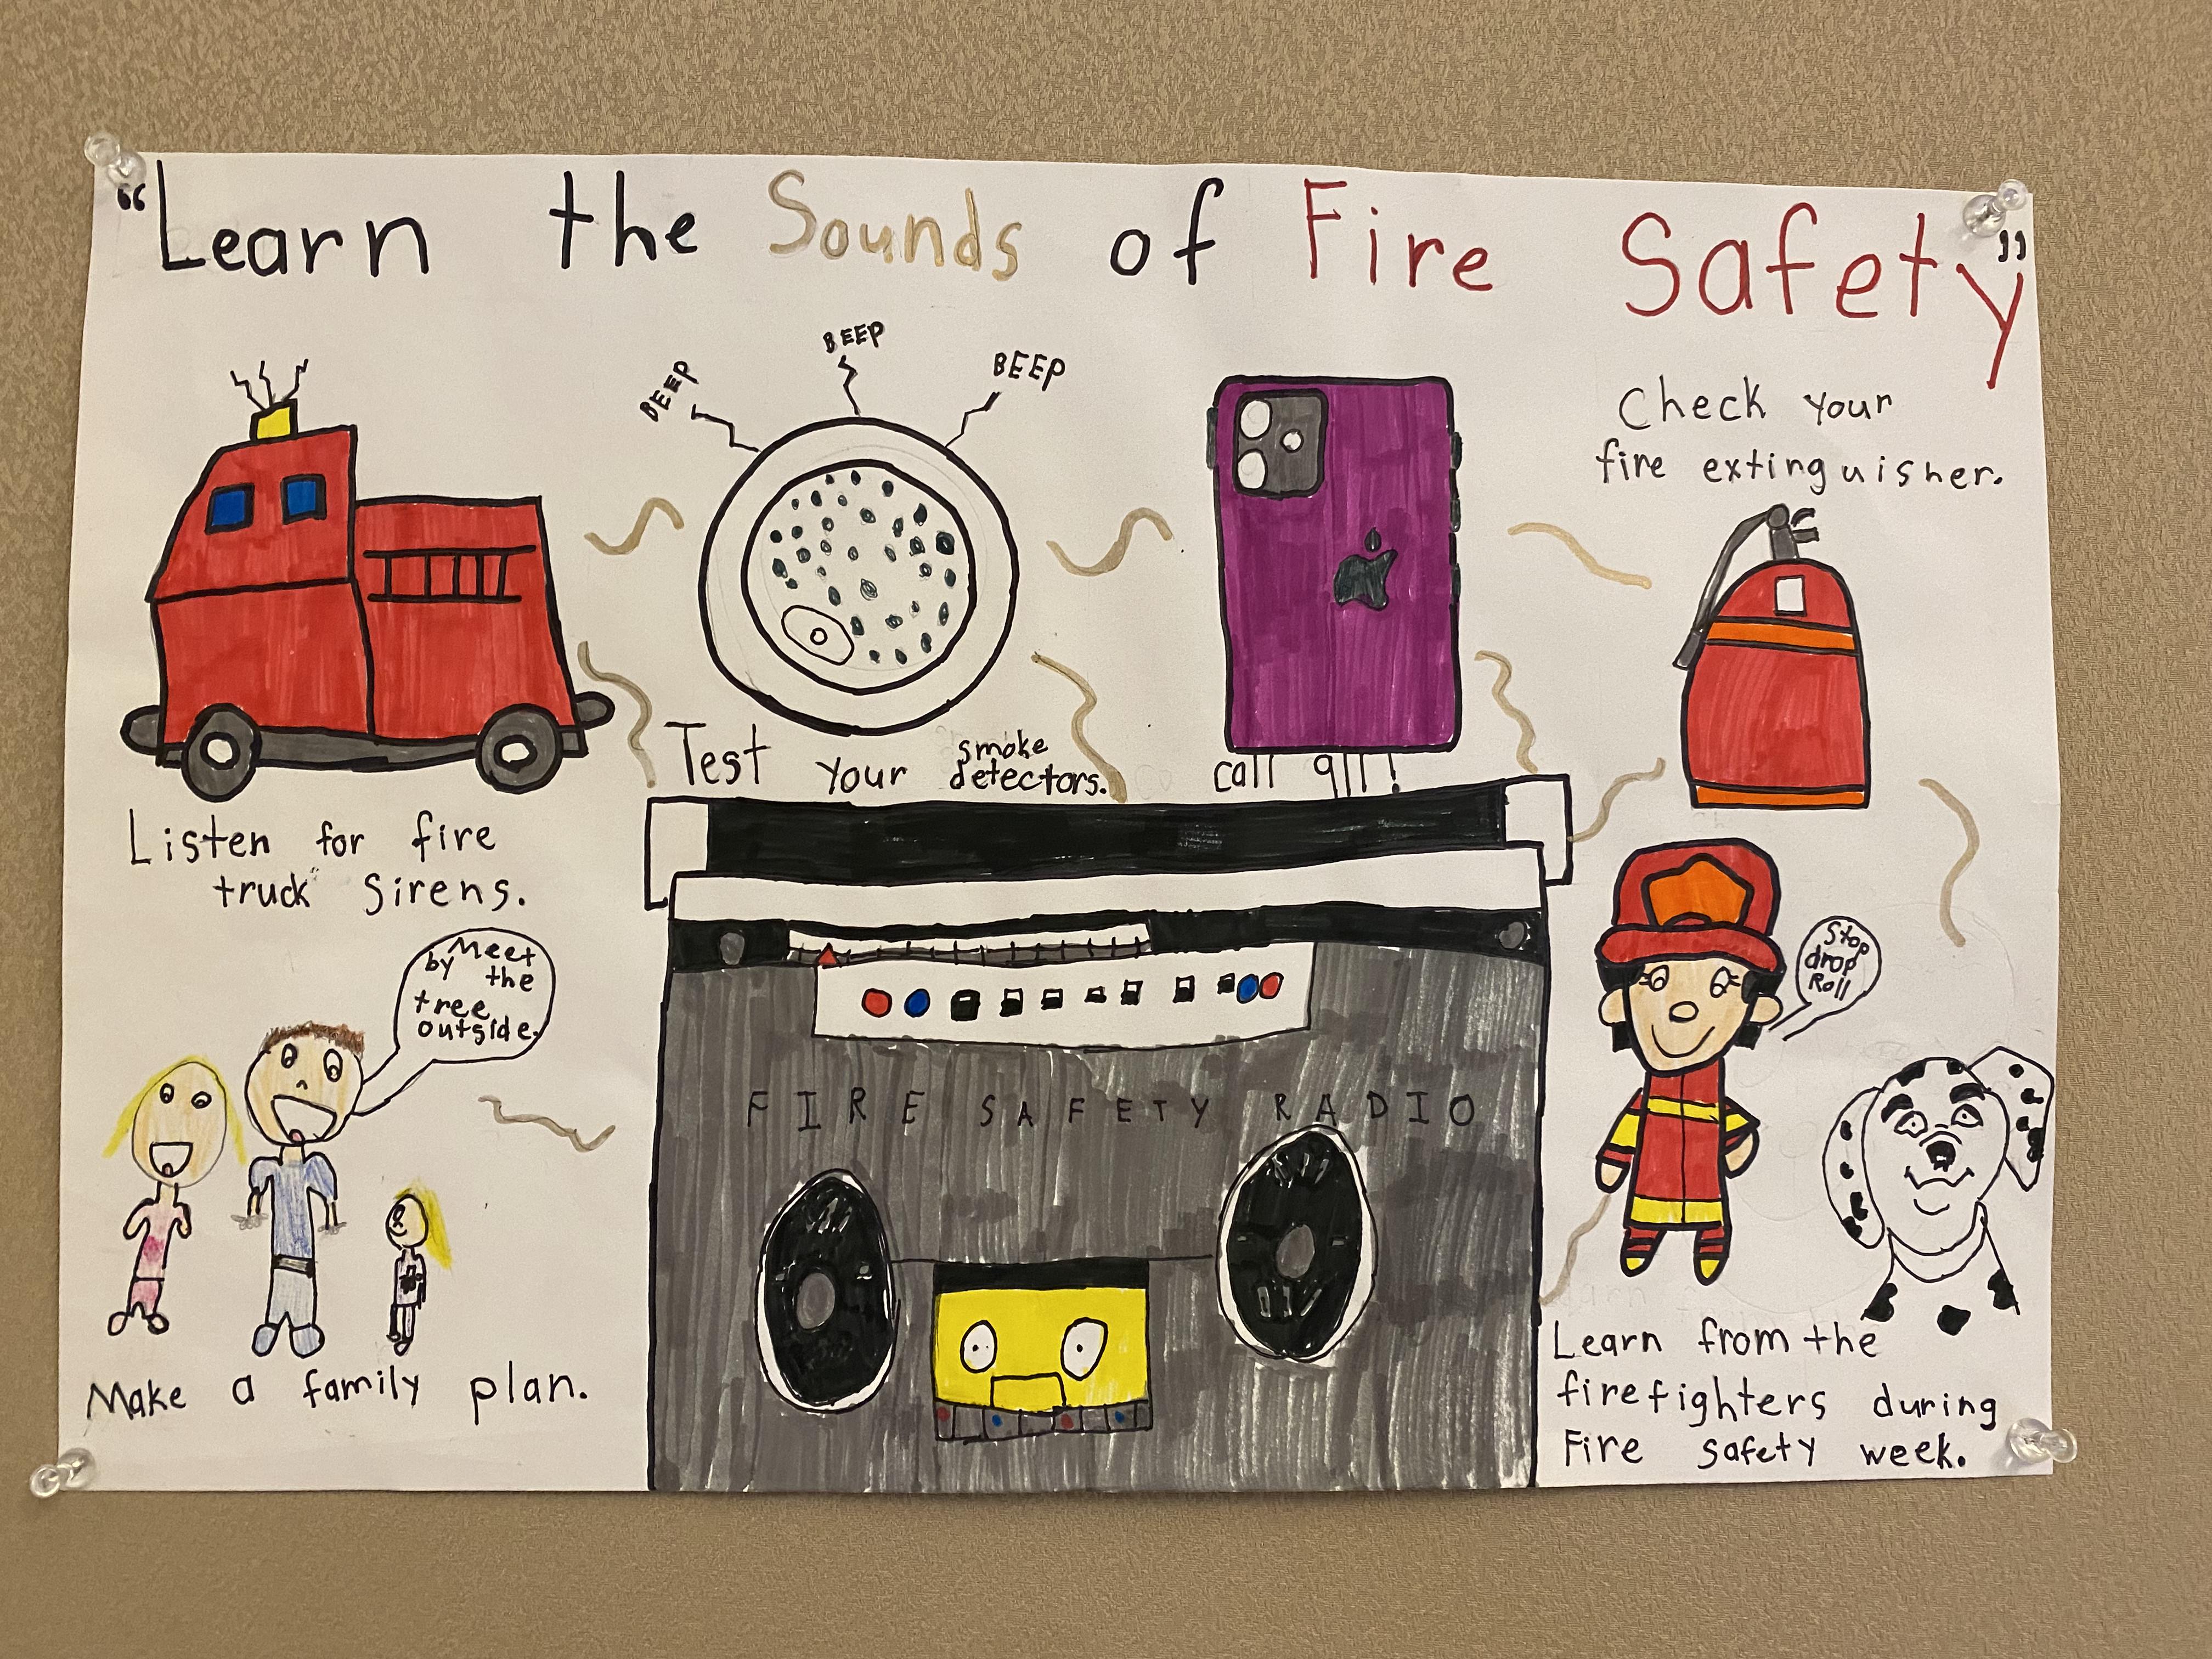 "Learn the Sounds of Fire Safety"
BEEP
BEEP
BEEP
Check your
fire extinguisher.
Test your smoke
detectors.
call 911!
Listen for fire
truck sirens.
Meet
by the
tree
outside.
Stop
drop
Roll
FIRE SAFETY RADIO
Make a family plan.
Learn from the
firefighters during
Fire safety week.